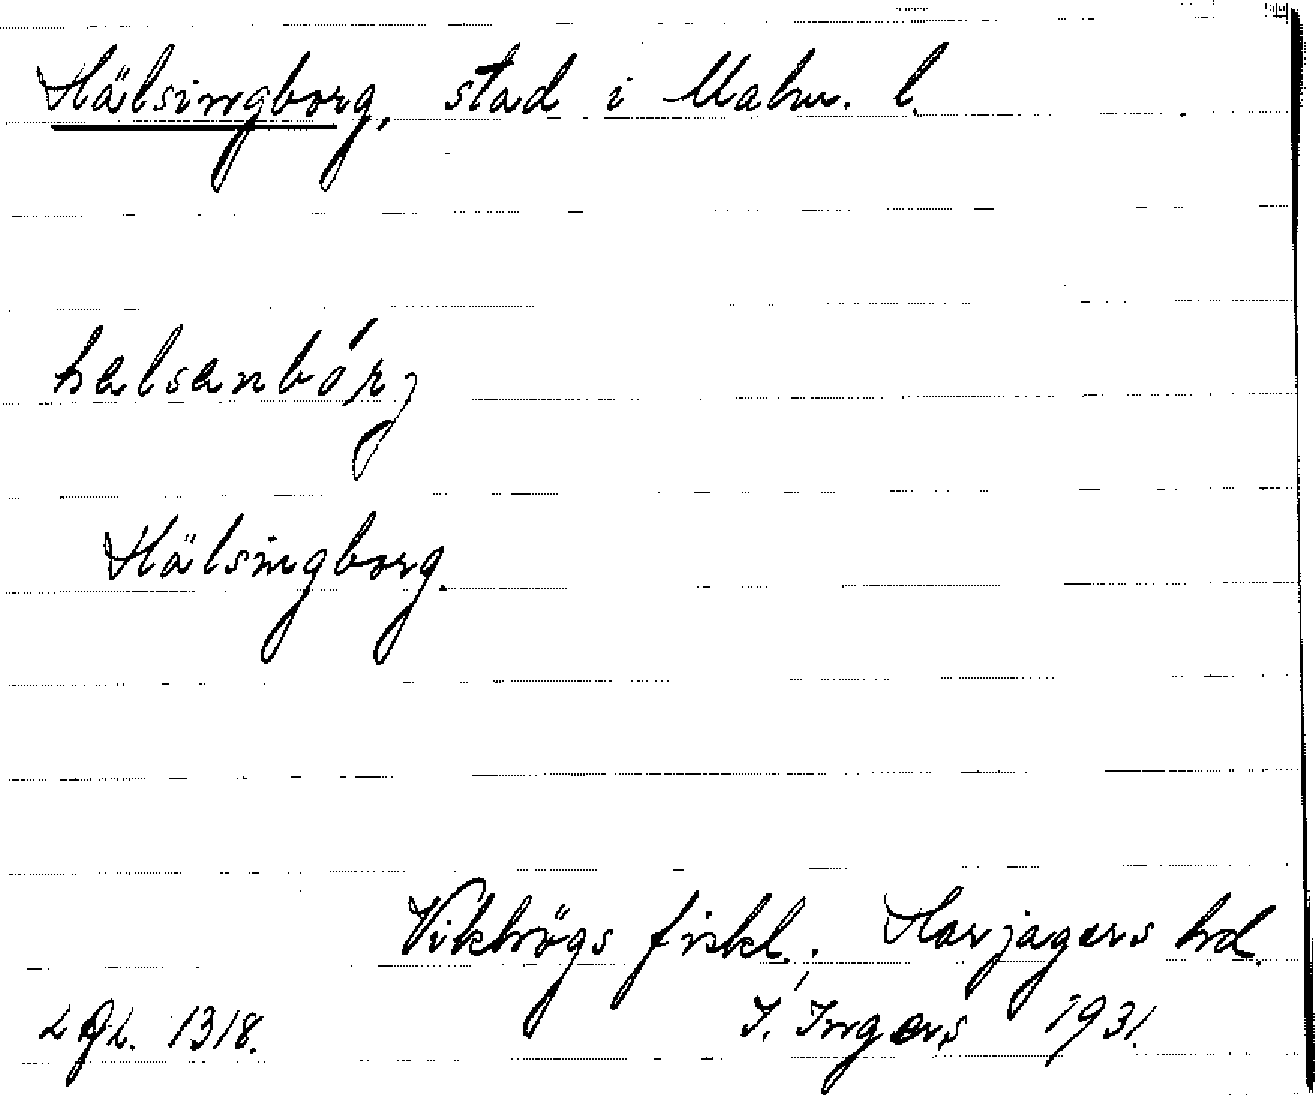 Hälsingborg, stad i Malm. l.
helsenbórj
Hälsingborg.
Vikhögs fiskl., Harjagers hd.
LGL. 1318. I. Ingers 1931.